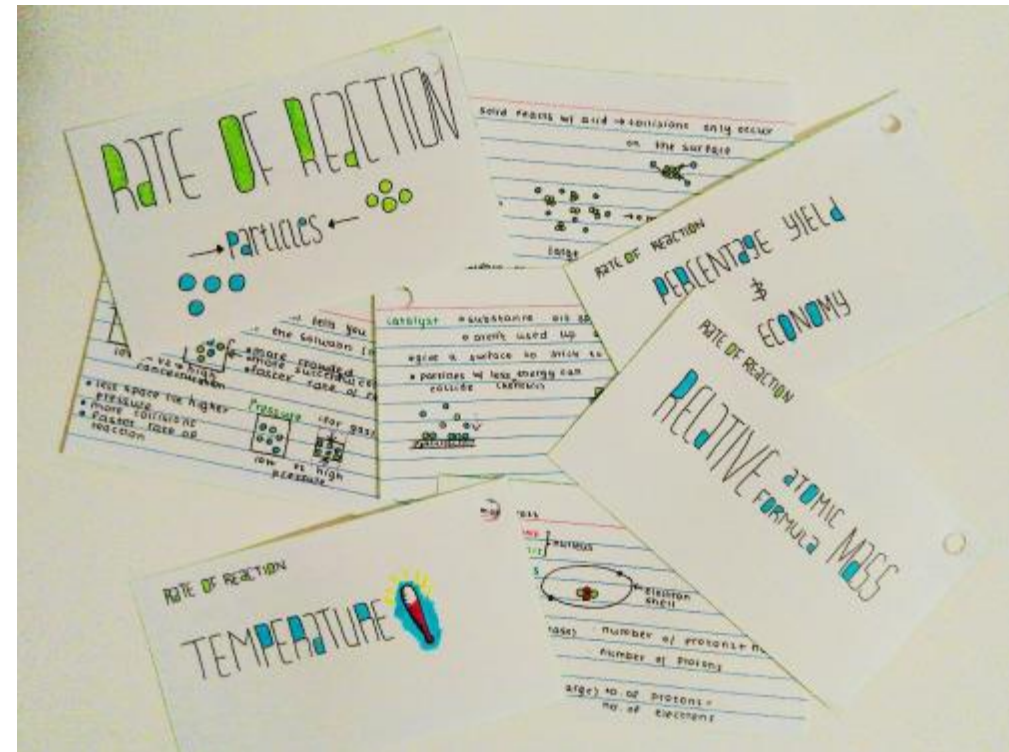 RATE OF REACTION
→ Particles ←
solid reacts w/ acid → collisions only occur
on the surface
large
RATE OF REACTION
PERCENTAGE YIELD
&
ECONOMY
RATE OF REACTION
RELATIVE ATOMIC FORMULA MASS
tells you
the solution
low vs high
concentration
• more crowded
• more
• faster rate of
• less space for higher
pressure
• more collisions
• faster rate of
reaction
Pressure (for
low vs high
pressure
catalyst • substance
• aren't used up
• give a surface to stick to
• particles w/ less energy can
collide
RATE OF REACTION
TEMPERATURE
nucleus
electron
shell
number of protons +
number of protons
no. of protons =
no. of electrons